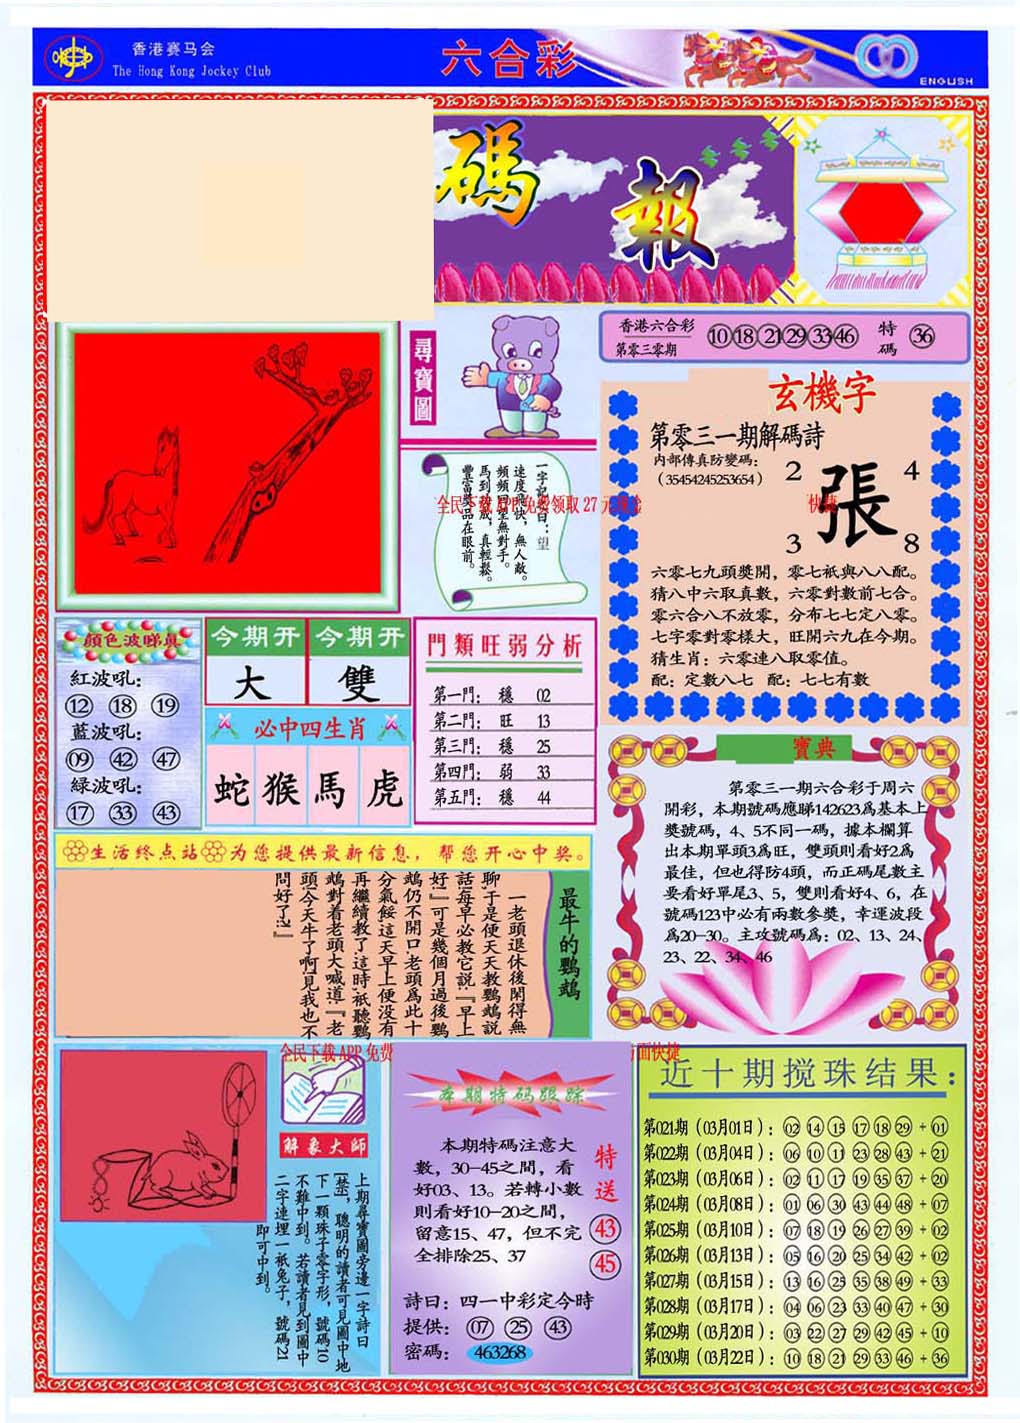 香港赛马会
The Hong Kong Jockey Club
六合彩
ENGLISH
碼報
尋寶圖
香港六合彩
第零三零期
10 18 21 29 33 46
特碼
36
玄機字
第零三一期解碼詩
内部傳真防變碼：
（35454245253654）
2 4
張
3 8
六零七九頭獎開，零七祇與八八配。
猜八中六取真數，六零對數前七合。
零六合八不放零，分布七七定八零。
七字零對零樣大，旺開六九在今期。
猜生肖：六零連八取零值。
配：定數八七 配：七七有數
一字記之曰：望
速度飛快，無人敵。
頻頻回望無對手。
馬到功成，真輕鬆。
豐富獎品在眼前。
全民下载 APP 免费领取 27 元现金
快捷
顏色波睇真
紅波吼：
12 18 19
藍波吼：
09 42 47
綠波吼：
17 33 43
今期开 今期开
大 雙
必中四生肖
蛇 猴 馬 虎
門類旺弱分析
第一門： 穩 02
第二門： 旺 13
第三門： 穩 25
第四門： 弱 33
第五門： 穩 44
寶典
第零三一期六合彩于周六
開彩，本期號碼應睇142623爲基本上
獎號碼，4、5不同一碼，據本欄算
出本期單頭3爲旺，雙頭則看好2爲
最佳，但也得防4頭，而正碼尾數主
要看好單尾3、5，雙則看好4、6，在
號碼123中必有兩數參獎，幸運波段
爲20—30。主攻號碼爲：02、13、24、
23、22、34、46
生活终点站 为您提供最新信息，帮您开心中奖。
最牛的鸚鵡
一老頭退休後閑得無
聊，于是便天天教鸚鵡説
話，每早必教它説：『早上
好！』可是幾個月過後，鸚
鵡仍不開口，老頭爲此十
分氣餒，這天早上便没有
再繼續教了，這時，祇聽鸚
鵡對着老頭大喊道：『老
頭，今天牛了啊，見我也不
問好了！』
全民下载 APP 免费
方面快捷
解象大師
上期尋寶圖旁邊一字詩曰
[禁]，聰明的讀者可見圖中地
下一顆珠子零字形，號碼10
不難中到。若讀者見到圖中
二字連埋一衹兔子，號碼21
即可中到。
本期特码跟踪
本期特碼注意大
數，30—45之間，看
好03、13。若轉小數
則看好10—20之間，
留意15、47，但不完
全排除25、37
特送
43
45
詩曰：四一中彩定今時
提供： 07 25 43
密碼： 463268
近十期搅珠结果：
第021期（03月01日）：02 14 15 17 18 29 + 01
第022期（03月04日）：06 10 11 23 28 43 + 21
第023期（03月06日）：02 11 17 19 35 37 + 20
第024期（03月08日）：01 06 30 43 44 48 + 07
第025期（03月10日）：07 18 19 26 27 39 + 02
第026期（03月13日）：05 16 20 25 34 42 + 02
第027期（03月15日）：13 16 25 35 38 49 + 33
第028期（03月17日）：04 06 23 33 40 47 + 30
第029期（03月20日）：03 22 27 29 42 45 + 10
第030期（03月22日）：10 18 21 29 33 46 + 36